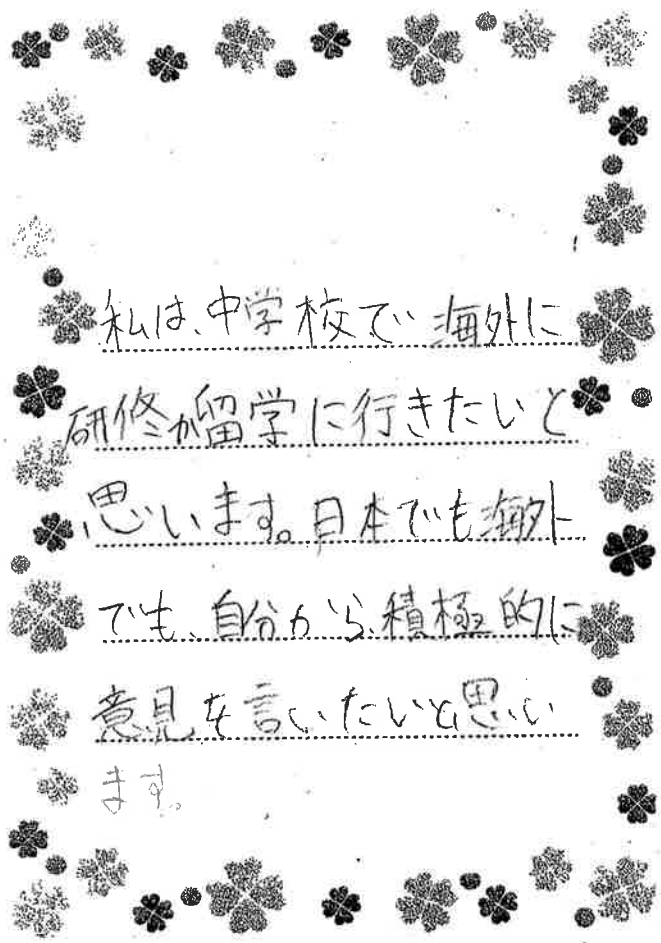 私は、中学校で海外に
研修か留学に行きたいと
思います。日本でも海外
でも、自分から、積極的に
意見を言いたいと思い
ます。